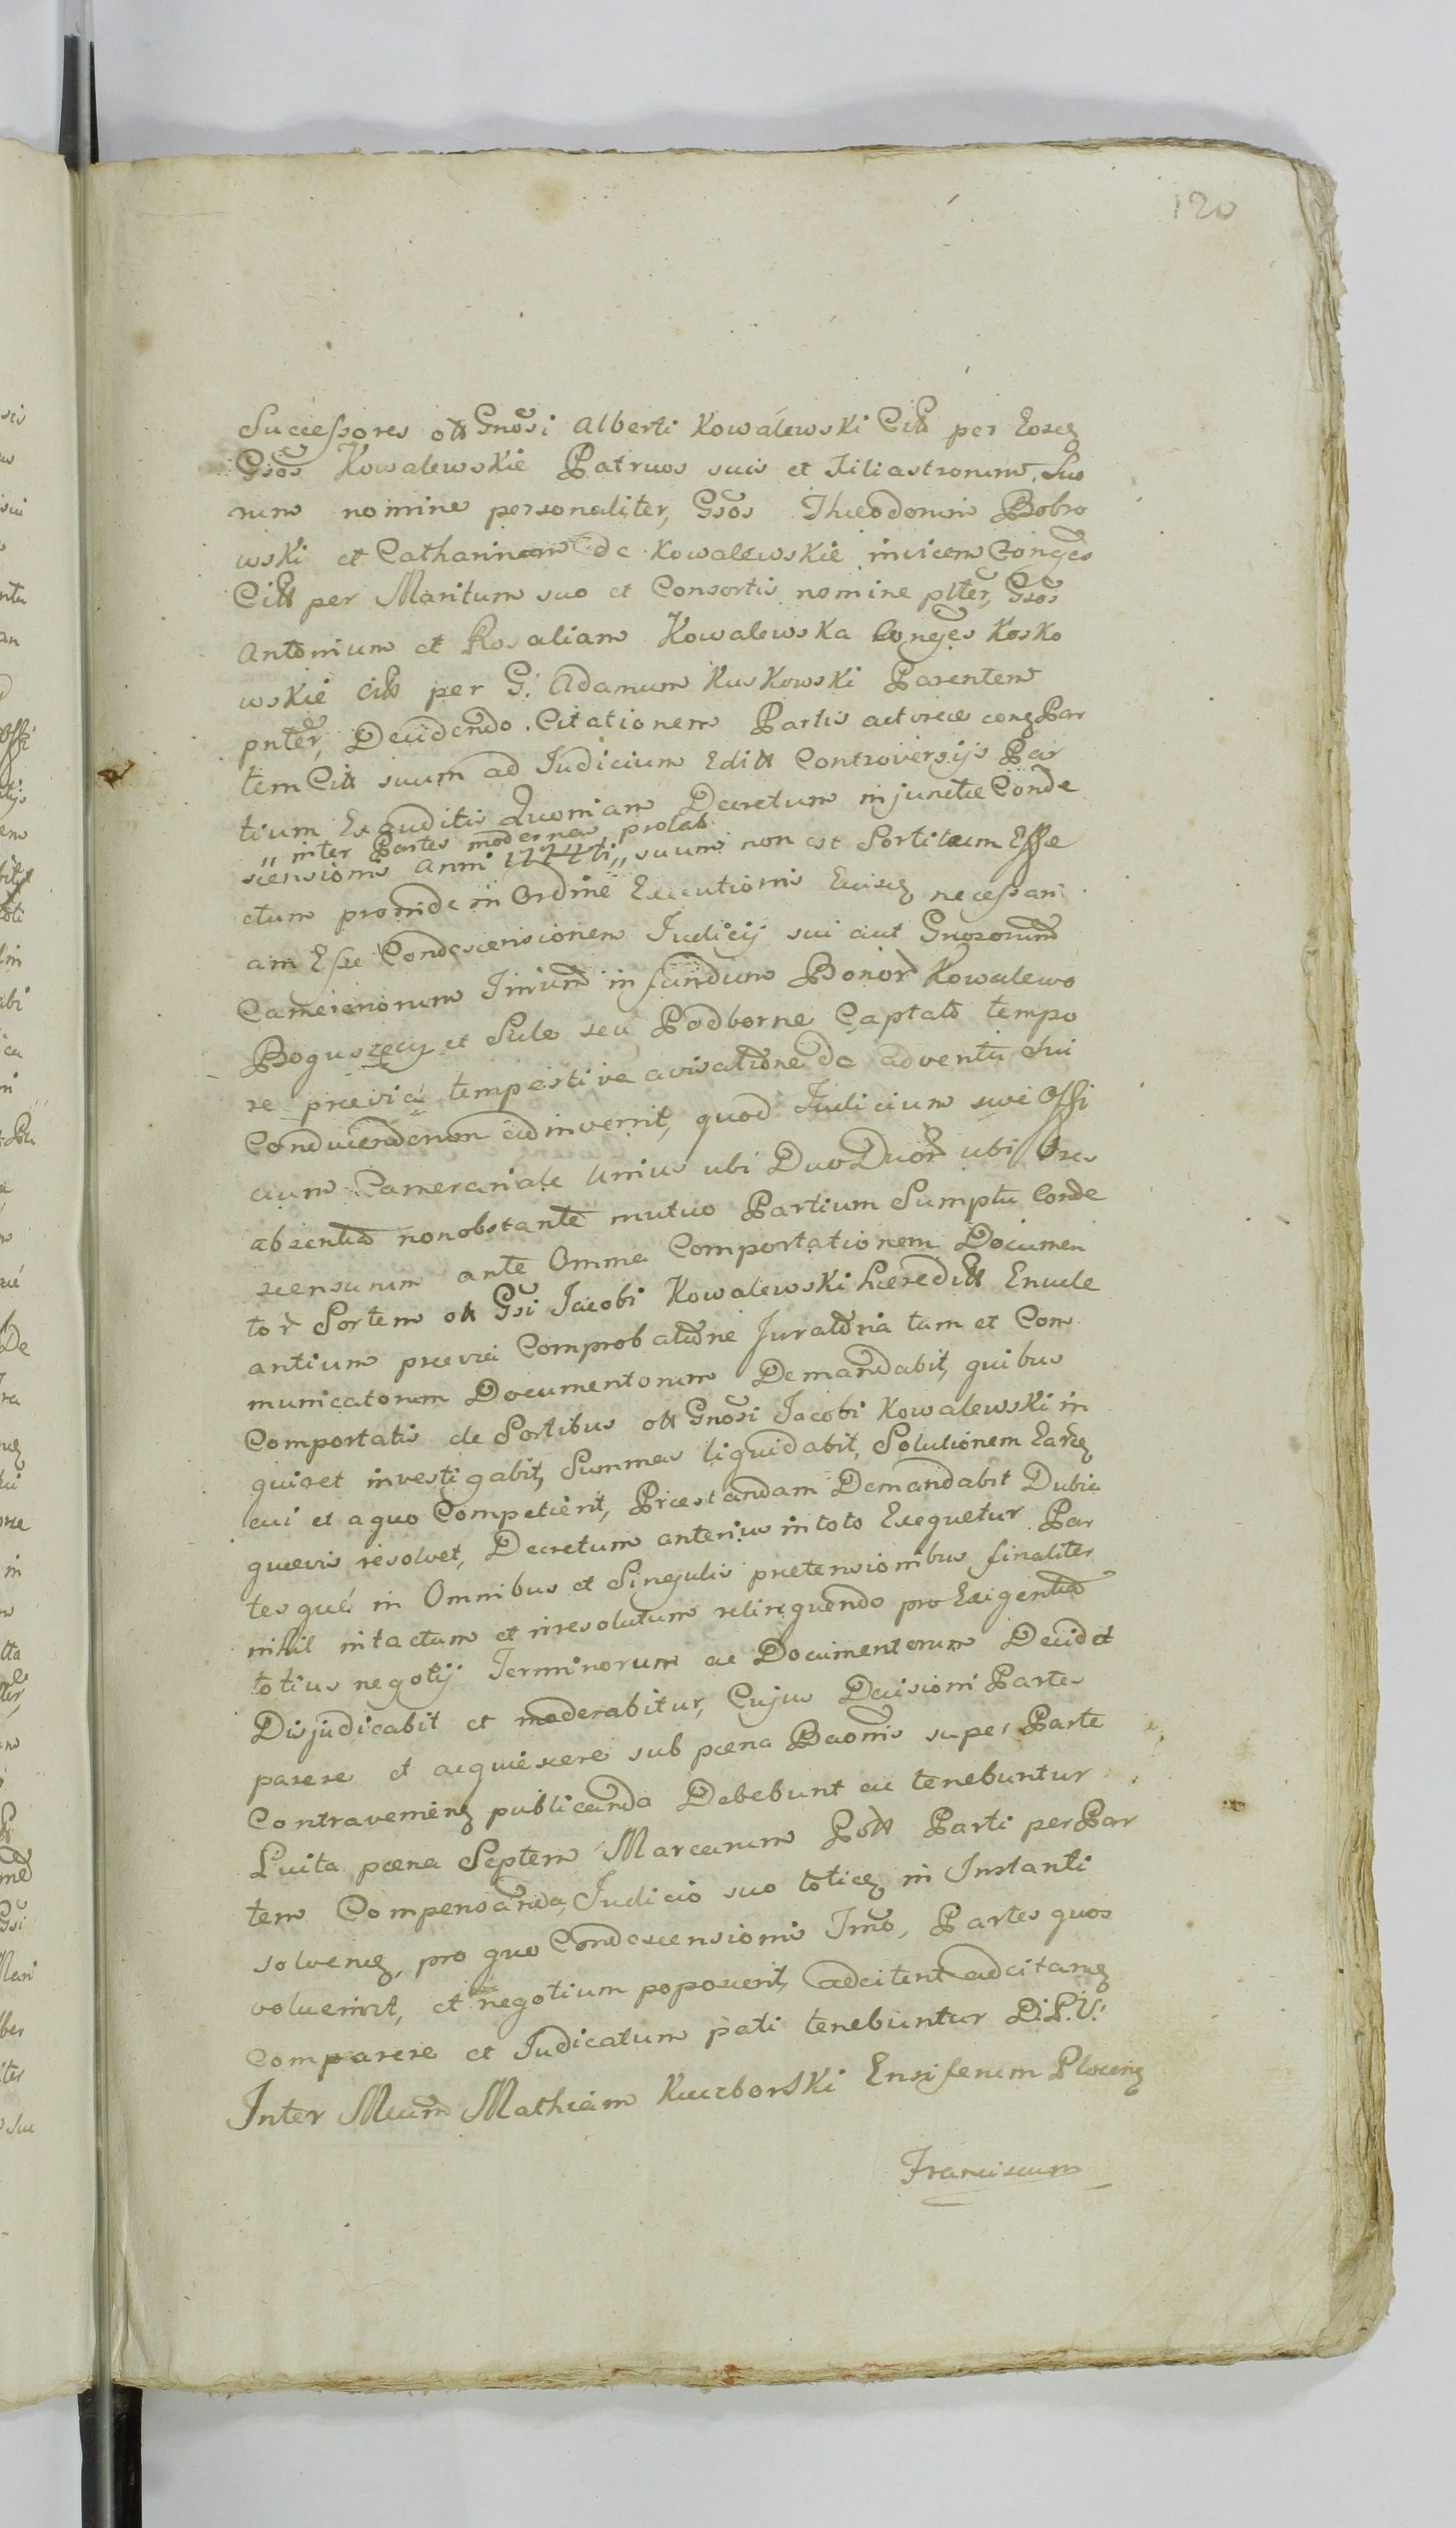 120
Successores olt Gnosi Alberti Kowalewski Citt per Eosq
Gsos Kowalewskie Patruos suis et Filiastrorum Suo
rum nomine personaliter, Gsos Theodorum Bobro
wski et Catharinam de Kowalewskie invicem Conges
Citt per Maritum suo et Consortis nomine plter, Gsos
Antonium et Rosaliam Kowalewska Conges Kosko
wskie Citt per G. Adamum Kuskowski Parentem
pnter, Decidendo. Citationem Partis actorece conq Par
tem Citt suum ad Judicium Editt Controversijs Par
tium Exauditis Quoniam Decretum injunctæ Conde
„ inter Partes modernas prolat
scensionis Anni 1777ti „ suum non est Sortitum Effe
ctum proinde in Ordine Executionis Ejusq necessari
am Esse Condescensionem Judicij sui aut Gnosorum
Camerariorum Inium in fundum Bonor Kowalewo
Boguszecy et Sule seu Podborne Captato tempo
re prævia tempestive avisatione de adventu sui
Conducendonon adinvenit, quod Judicium sive Offi
cium Camerariale Unius ubi Duo Duor ubi Tres
absentia nonobstante mutuo Partium Sumptu Conde
scensurum ante Omnia Comportationem Documen
tor Sortem olt Gsi Jacobi Kowalewski hæreditt Enucle
antium prævia Comprobatione Juratoria tam et Com
municatorum Documentorum Demandabit, quibus
Comportatis de Sortibus olt Gnosi Jacobi Kowalewski in
quiret investigabit, Summas liquidabit, Solutionem Earq
cui et a quo Competierit, Præstandam Demandabit Dubia
quævis resolvet, Decretum anterius in toto Exequetur Par
tesque in Omnibus et Singulis prætensionibus finaliter
nihil intactum et irresolutum relinquendo pro Exigentia
totius negotij Terminorum ac Documentorum Decidet
Disjudicabit et moderabitur, Cujus Decisioni Partes
parere et acquiescere sub pœna Baonis super Parte
Contravenienq publicanda Debebunt ac tenebuntur
Luita pœna Septem Marcarum Poltt Parti per Par
tem Compensanda, Judicio suo toticq in Instanti
solvenq, pro quo Condescensionis Imo, Partes quos
voluerint, et negotium poposcerit, adcitent adcitanq
Comparere et Judicatum pati tenebuntur D.L.V.
Inter Mcum Mathiam Kuczborski Ensiferum Plocenq
Franciscum